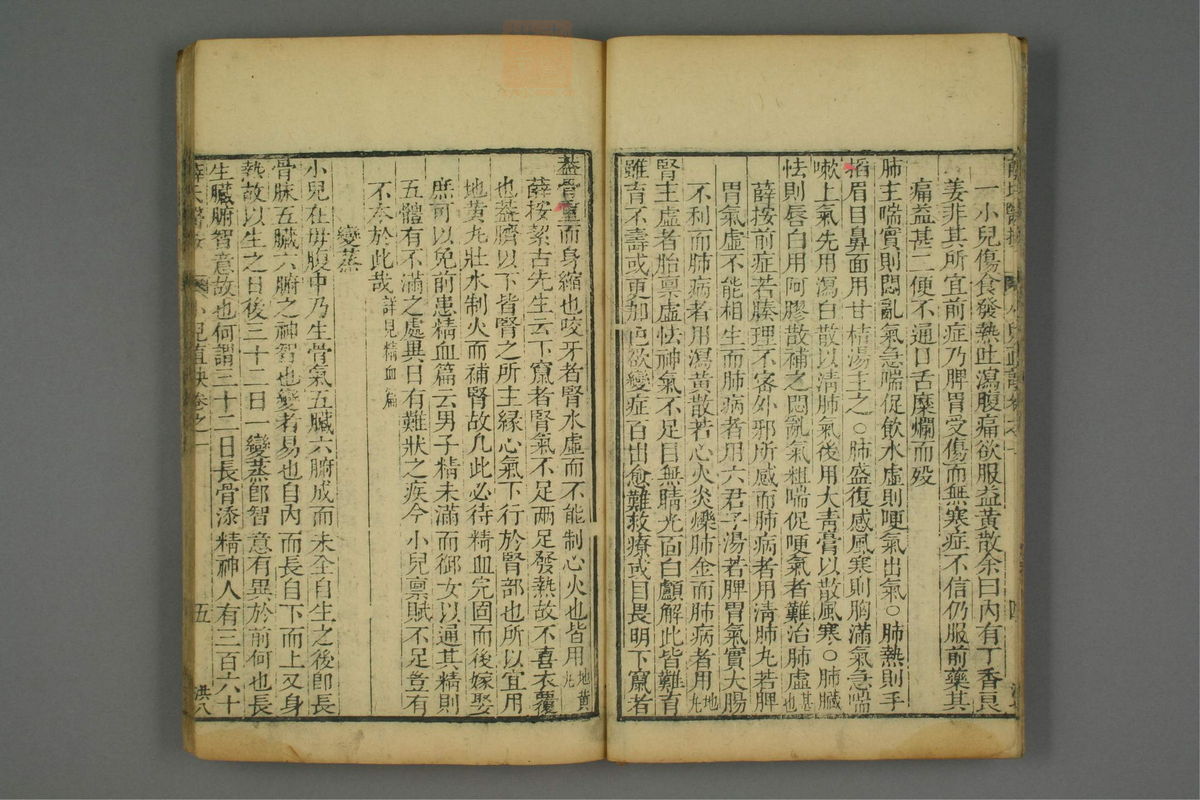 一小兒傷食發熱吐瀉腹痛欲服益黃散余曰內有丁香良
姜非其所宜前症乃脾胃受傷而無寒症不信仍服前藥其
痛益甚二便不通口舌糜爛而歿
肺主喘實則悶亂氣急喘促飲水虛則哽氣出氣○肺熱則手
掐眉目鼻面用甘桔湯主之○肺盛復感風寒則胸滿氣急喘
嗽上氣先用瀉白散以清肺氣後用大青膏以散風寒○肺臟
怯則唇白用阿膠散補之悶亂氣粗喘促哽氣者難治肺虛甚也
薛按前症若腠理不密外邪所感而肺病者用清肺丸若脾
胃氣虛不能相生而肺病者用六君子湯若脾胃氣實大腸
不利而肺病者用瀉黃散若心火炎爍肺金而肺病者用地 丸
腎主虛者胎禀虛怯神氣不足目無睛光面白顱解此皆難育
雖育不壽或更加色欲變症百出愈難救療或目畏明下竄者
蓋骨重而身縮也咬牙者腎水虛而不能制心火也皆用地黃丸
薛按絜古先生云下竄者腎氣不足兩足發熱故不喜衣覆
也蓋臍以下皆腎之所主緣心氣下行於腎部也所以宜用
地黃丸壯水制火而補腎故凡此必待精血完固而後嫁娶
庶可以免前患精血篇云男子精未滿而御女以通其精則
五體有不滿之處異日有難狀之疾今小兒禀賦不足豈有
不本於此哉詳見精血篇
變蒸
小兒在母腹中乃生骨氣五臟六腑成而未全自生之後卽長
骨脉五臟六腑之神智也變者易也自內而長自下而上又身
熱故以生之日後三十二日一變蒸卽智意有異於前何也長
生臟腑智意故也何謂三十二日長骨添精神人有三百六十
薛氏醫按 小兒直訣卷之一 五 洪八